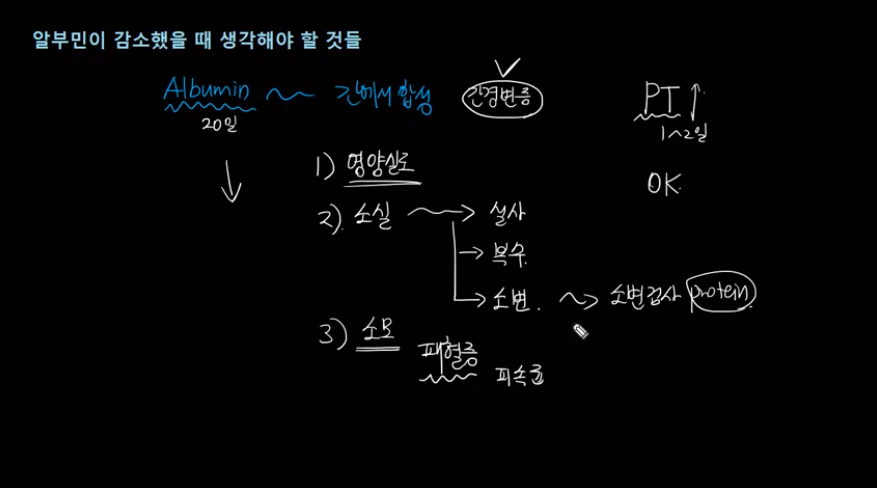 알부민이 감소했을 때 생각해야 할 것들
Albumin 간에서 합성 간경변증 PT
20일 1~2일
1) 영양실조 OK.
2). 소실 설사
복수.
소변. 소변검사 protein.
3) 소모
패혈증 피속로